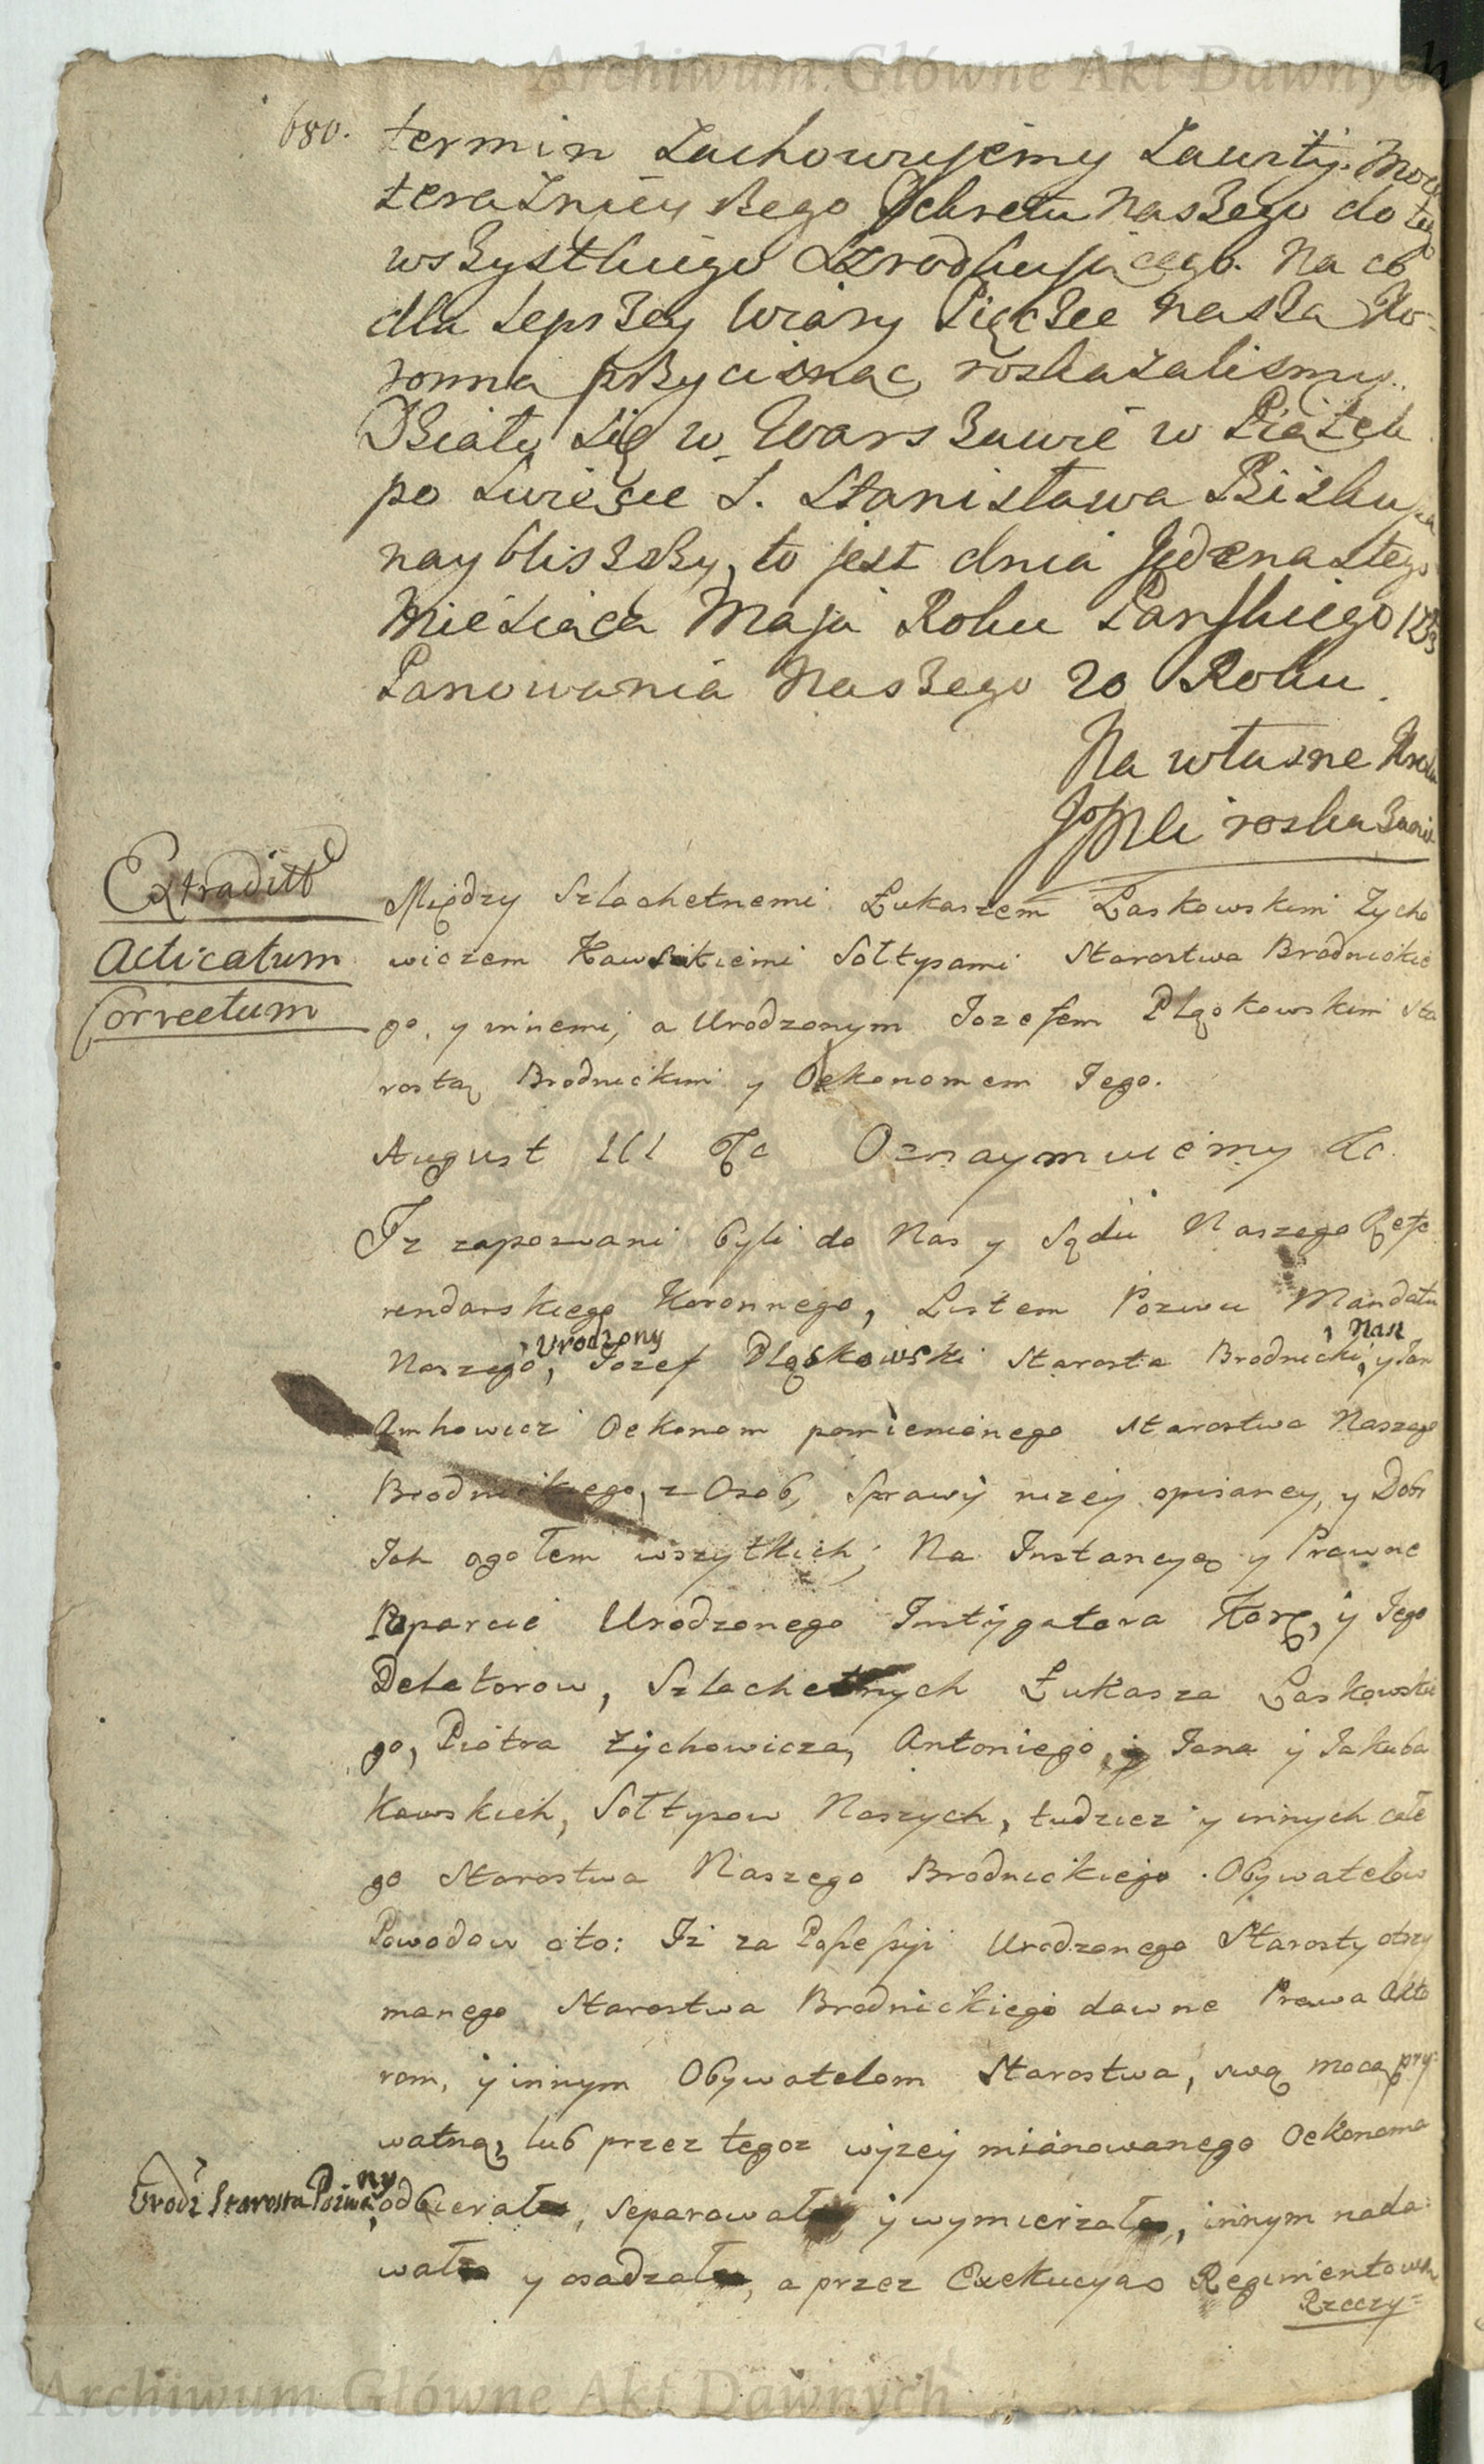 Archiwum Główne Akt Dawnych
680.
termin zachowujemy zawity. Mocą
teraznieyszego Dekretu naszego do tego
wszystkiego zzrodkującego. Na co
dla lepszey wiary Pięczęc nasza Ko-
ronna przycisnąc roskazalismy.
Działo się w Warszawie w Piątek
po Swięcie S. Stanisława Biskupa
naybliszszy, to jest dnia Jedenastego
Miesiąca Maja Roku Panskiego 1753
Panowania Naszego 20 Roku.
Na własne Krolu
JoMci roskazanie
Extraditt
Acticatum
Correctum
Między Szlachetnemi Łukaszem Laskowskim Zycho
wiczem Kawskiemi Sołtysami Starostwa Brodnickie
go, y innemi, a Urodzonym Jozefem Pląskowskim Sta
rostą Brodnickim y Oekonomem Jego.
August III &c Oznaymuiemy &c.
Iz zapozwani byli do Nas y Sądu Naszego Refe
rendarskiego Koronnego, Listem Pozwu Mandatu
Urodzony Nasz
Naszego, Jozef Pląskowski Starosta Brodnicki, y Jan
Amhowicz Oekonom pomienionego Starostwa Naszego
Brodnickiego, z Osob, Sprawy nizey opisaney, y Dobr
Ich ogołem wszytkich; Na Instancyą y Prawne
Poparcie Urodzonego Instygatora Kor, y Jego
Delatorow, Szlachetnych Łukasza Laskowskie
go, Piotra Zychowicza, Antoniego, y Jana y Jakuba
Kawskich, Sołtysow Naszych, tudziez y innych całe
go Starostwa Naszego Brodnickiego Obywatelow
Powodow oto: Iz za Possessyi Urodzonego Starosty otrzy
manego Starostwa Brodnickiego dawne Prawa Akto
rom, y innym Obywatelom Starostwa, swą mocą pry-
watną, lub przez tegoz wyzey mianowanego Oekonoma
Urodz Starosta Pozwany, odbierał, separował y wymierzał, innym nada-
wał y osadzał, a przez Exekucyas Regimentowe
Rzeczy-
Archiwum Główne Akt Dawnych